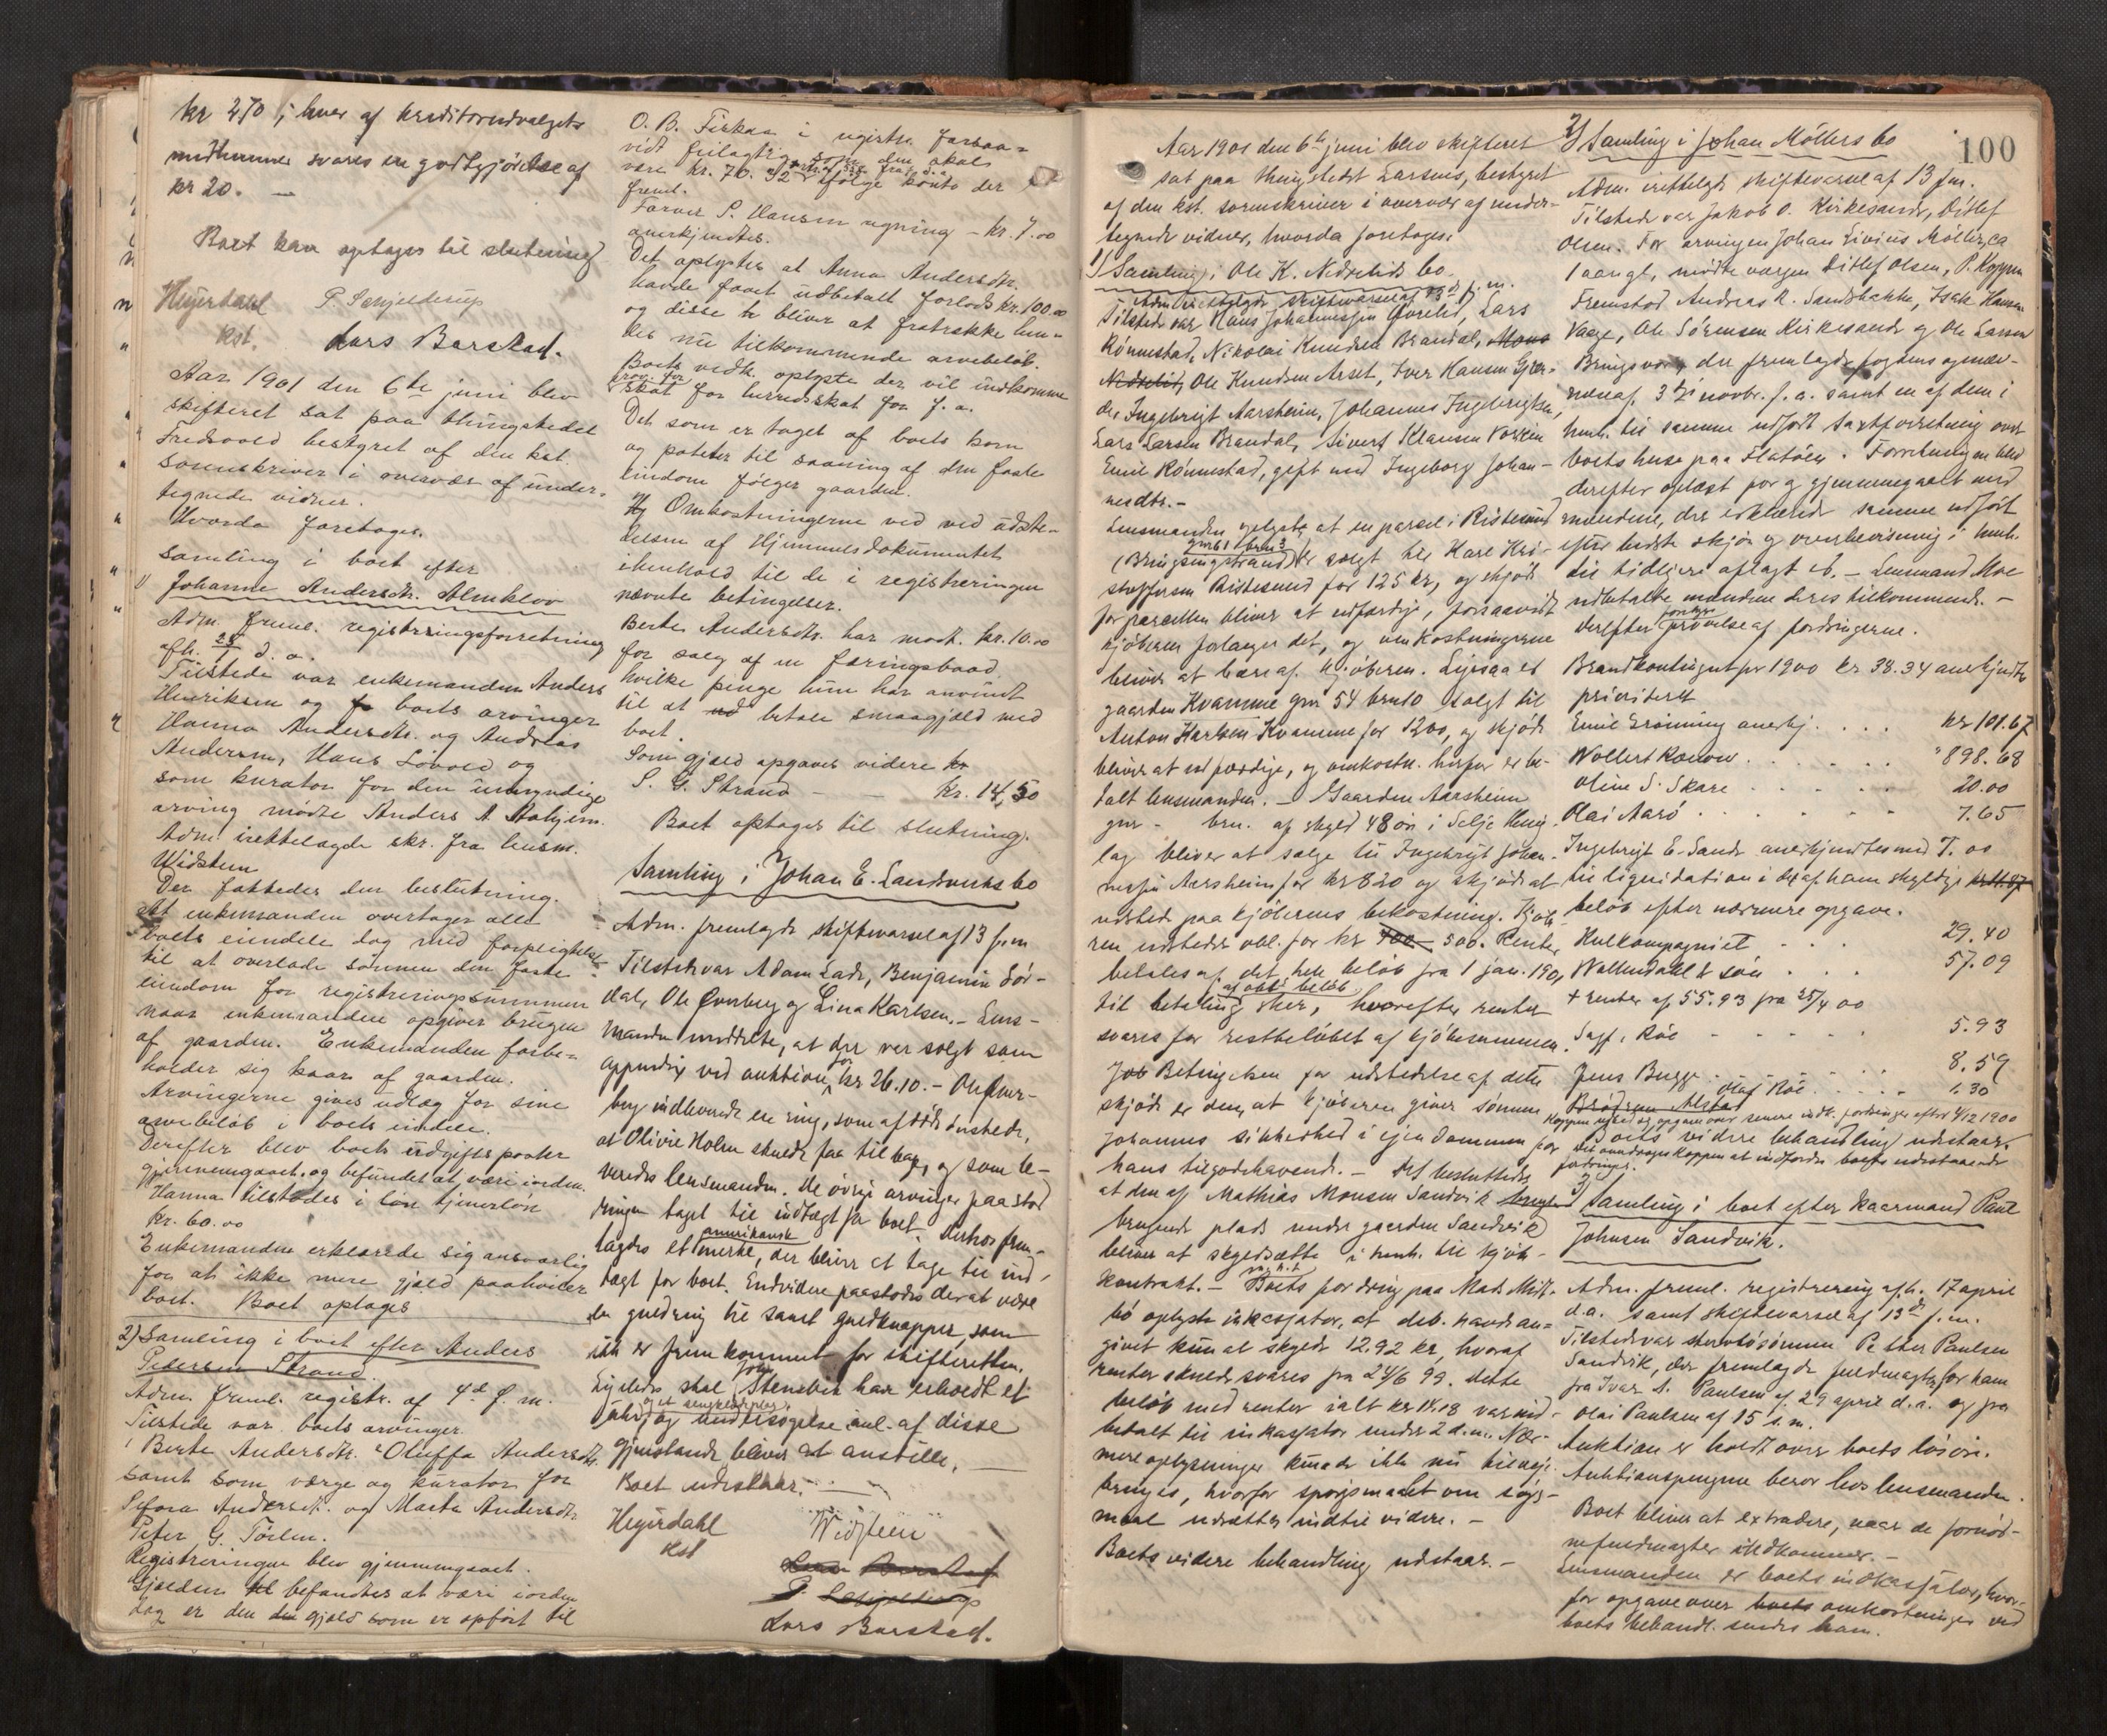 kr 270; hver af kreditorudvalgets
medlemmer svares en godtgjörelse af
kr 20. —
Boet kan optages til slutning
Heyerdahl P. Schjelderup
kst.
Lars Barstad.
Aar 1901 den 6te juni blev
skifteret sat paa thingstedet
Fredsvold bestyret af den kst.
sorenskriver i overvær af under-
tegnede vidner.
Hvorda foretoges.
samling i boet efter
1) Johanne Andersdtr. Almklov
Adm. freml. registreringsforretning
afh. d. a.
Tilstede var enkemanden Anders
Henriksen og boets arvinger
Hanna Andersdtr. og Andreas
Andersen, Hans Lövold og
som kurator for den umyndige
arving mödte Anders A
Adm. irettelagde skr. fra lensm.
Widsteen
Der fattedes den beslutning.
At enkemanden overtager alle
boets eiendele dog med forpligtelse
til at overlade sönnen den faste
eiendom for registreringssummen
naar enkemanden opgiver brugen
af gaarden. Enkemanden forbe-
holder sig kaar af gaarden.
Arvingerne gives udlæg for sine
arvebelöb i boets eiendele.
Derefter blev boets udgiftsposter
gjennemgaaet og befundet at være i orden.
Hanna tilstodes i lön tjenerlön
kr. 60.00
Enkemanden erklærede sig ansvarlig
for at ikke mere gjæld paahviler
boet. Boet optages
2) Samling i boet efter Anders
Pedersen Strand.
Adm. freml. registr. af 4de f. m.
Tilstede var boets arvinger.
Berte Andersdtr. Oluffa Andersdtr.
samt som værge og kurator for
Sefora Andersdt. og Marta Andersdtr
Peter G.
Registreringen blev gjennemgaaet.
Gjælden befandtes at være i orden
dog er den gjæld som er opfört til
O. B. i registr. forsaa-
vidt feilagtig som den skal
være kr. 70.92 ifölge konto der
freml.
Farver P. Hansen regning — kr. 7.00
anerkjendtes.
Det oplystes at Anna Andersdtr.
havde faaet udbetalt forlods kr. 100.00
og disse kr bliver at fratrække hen-
des nu tilkommende arvebelöb.
Boets vedk. oplyste der vil indkomme
krav for
skat for herredsskat for f. a.
Det som er taget af boets korn
og poteter til saaning af den faste
eiendom fölger gaarden.
Omkostningerne ved ved udste-
delsen af Hjemmelsdokumentet
ihenhold til de i registreringen
nævnte betingelser.
Berte Andersdtr. har modt. kr. 10.00
for salg af en færingsbaad,
hvilke penge hun har anvendt
til at betale smaagjæld med
boet.
Som gjæld opgaves videre kr
S. G. Strand — — kr. 14,50
Boet optages til slutning.
Samling i Johan E. Landverks bo
Adm. fremlagde skiftevarsel af 13 f. m
Tilstede var Adam Lade, Benjamin Lör-
dal, Ole Ovrberg og Lina Karlsen. — Lens-
manden meddelte, at der var solgt som
appendix ved auktion for kr 26.10. — Ole Overs-
berg indleverede en ring, som afdöde önskede,
at Olivie Holm skulde faa tilbage, og som le-
veredes lensmanden. De övrige arvinger paastod
ringen taget til indtægt for boet. Derhos frem-
lagdes et amerikansk merke, der bliver at tage til ind-
tægt for boet. Endvidere paastodes der at være
en guldring til samt guldknapper, som
ikke er fremkommet for skifteretten.
Ligeledes skal John Stensbek har erholdt et
uhr og et sengklædeplag, og undersögelse anl. af disse
gjenstande bliver at anstille. —
Boet udestaar. —
Heyerdahl Widsteen
kst
Lars Barstad
P. Schjelderup
Lars Barstad.
100
Aar 1901 den 6te juni blev skifteret
sat paa thingstedet Larsnes, bestyret
af den kst. sorenskriver i overvær af under-
tegnede vidner, hvorda foretoges:
1) Samling i Ole K. Nedrelids bo.
Adm irettelagde skiftevarsel af 13de f. m.
Tilstede var Hans Johannessen Övrelid, Lars
Rönnestad, Nikolai Knudsen Brandal, Mons
Nedrelid, Ole Knudsen Arset, Iver Hansen Gjær-
de, Ingebrigt Aarsheim, Johannes Ingebrigtsen,
Lars Larsen Brandal, Sivert Klausen
Emil Rönnestad, gift med Ingeborg Johan-
nesdtr. —
Lensmanden oplyste at en parcel i Ristesund
gno 61 brno 3
(Bringsingstrand) er solgt til Kare Kri-
stoffersen Ristesund for 125 kr, og skjöde
for parcellen bliver at udfærdige, forsaavidt
kjöberen forlanger det, og omkostningerne
bliver at bære af kjöberen. Ligesaa er
gaarden Kvamme gno 54 brno 10 solgt til
Anton Karlsen Kvamme for 1200, og skjöde
bliver at udfærdige, og omkostn. herfor er be-
talt lensmanden. — Gaarden Aarsheim
gno — brn. af skyld 48 öre i Selje thing-
lag bliver at sælge til Ingebrigt Johan-
nessen Aarsheim for kr 820 og skjöde at
udstede paa kjöberens bekostning. Kjöbe-
ren udsteder obl. for kr 700 500. Renter
betales af det hele belöb fra 1 jan. 1901
af obl. belöb
til betaling sker, hvorefter renter
svares for restbelöbet af kjöbesummen.
Betingelsen for udstedelse af dette
skjöde er den, at kjöberen giver sönnen
Johannes sikkerhed i ejendommen for
hans tilgodehavende. — Det besluttedes
at den af Mathias Monsen Sandvik
brugende plads under gaarden Sandvik
bliver at skyldsætte i henh. til kjöbe-
kontrakt. — Boets fordring paa Mads Mitt-
bö oplyste inkassator, at deb. havde an-
givet kun at skylde 12.92 kr, hvoraf
renter skulde svares fra 24/6 99. dette
belöb med renter ialt kr 14.18 var ind-
betalt til inkassator under 2 d. m. Nær-
mere oplysninger kunde ikke nu tilveie-
bringes, hvorfor spörgsmaalet om sögs-
maal udsættes indtil videre. —
Boets videre behandling udstaar. —
2) Samling i Johan Möllers bo
Adm. irettelagde skiftevarsel af 13 f. m.
Tilstede var Jakob O. Kirkesande, Ditlef
Olsen. For arvingen Johan Livius Möller, ca
1 aar gl., mödte værgen Ditlef Olsen, P. Koppen
Fremstod Andreas R. Sandsbakke, Isak Hansen
Vaage, Ole Sörensen Kirkesande og Ole Larsen
Bringsvor, der fremlagde fogdens opnæv-
nelse af 3die novbr. f. a. samt en af dem i
henh. til samme udfört taxtforretning over
boets huse paa Flatöen. Forretningen blev
derefter oplæst for og gjennemgaaet med
mændene, der erklærede samme udfört
efter bedste skjön og overbevisning i henh.
til tidligere aflagt ed. — Lensmand Moe
udbetalte mændene deres tilkommende. —
Derefter fortsat prövelse af fordringerne.
Brandkontingent for 1900 kr 38.34 anerkjendtes
prioriteret
Emil Grönning anerkj. . . . . kr 101.67
Wollert Konow . . . . . " 898.68
Oline S. Skare . . . . . 20.00
Olai Aarö . . . . . 7.65
Ingebrigt E. Sande anerkjendtes med 7.00
til liquidation i af ham skyldige
belöb efter nærmere opgave.
Kulkompagniet . . . 29.40
Wallendahl & sön . . . 57.09
+ renter af 55.93 fra 25/4 00
Sagf. Röe — — — 5.93
Jens Bugge . . . . . 8.59
Olaf Röe . . . . . 1.30
Boets videre behandling udstaar.
Det overdrages Koppen at indfordre boets udestaaende
fordringer.
3) Samling i boet efter Kaarmand Paul
Johnsen Sandvik.
Adm. freml. registrering afh. 17 april
d. a. samt skiftevarsel af 13de f. m.
Tilstede var sterbosönnen Petter Paulsen
Sandvik, der fremlagde fuldmagter for ham
fra Ivar A. Paulsen af 29 april d. a. og fra
Olai Paulsen af 15 s. m.
Auktion er holdt over boets lösöre.
Auktionspengene beror hos lensmanden.
Boet bliver at extradere, naar de fornöd-
ne fuldmagter indkommer. —
Lensmanden er boets inkassator, hvor-
for opgave over boets omkostninger ved
boets behandl. sendes ham.